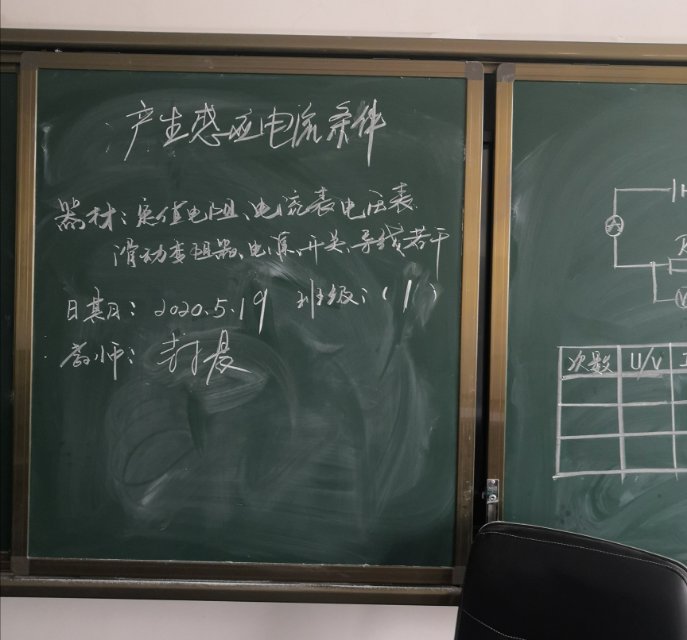 产生感应电流条件
器材：定值电阻、电流表电压表
滑动变阻器、电源、开关、导线若干
日期：2020.5.19 班级：(1)
教师：封晨
A
V
次数 U/V